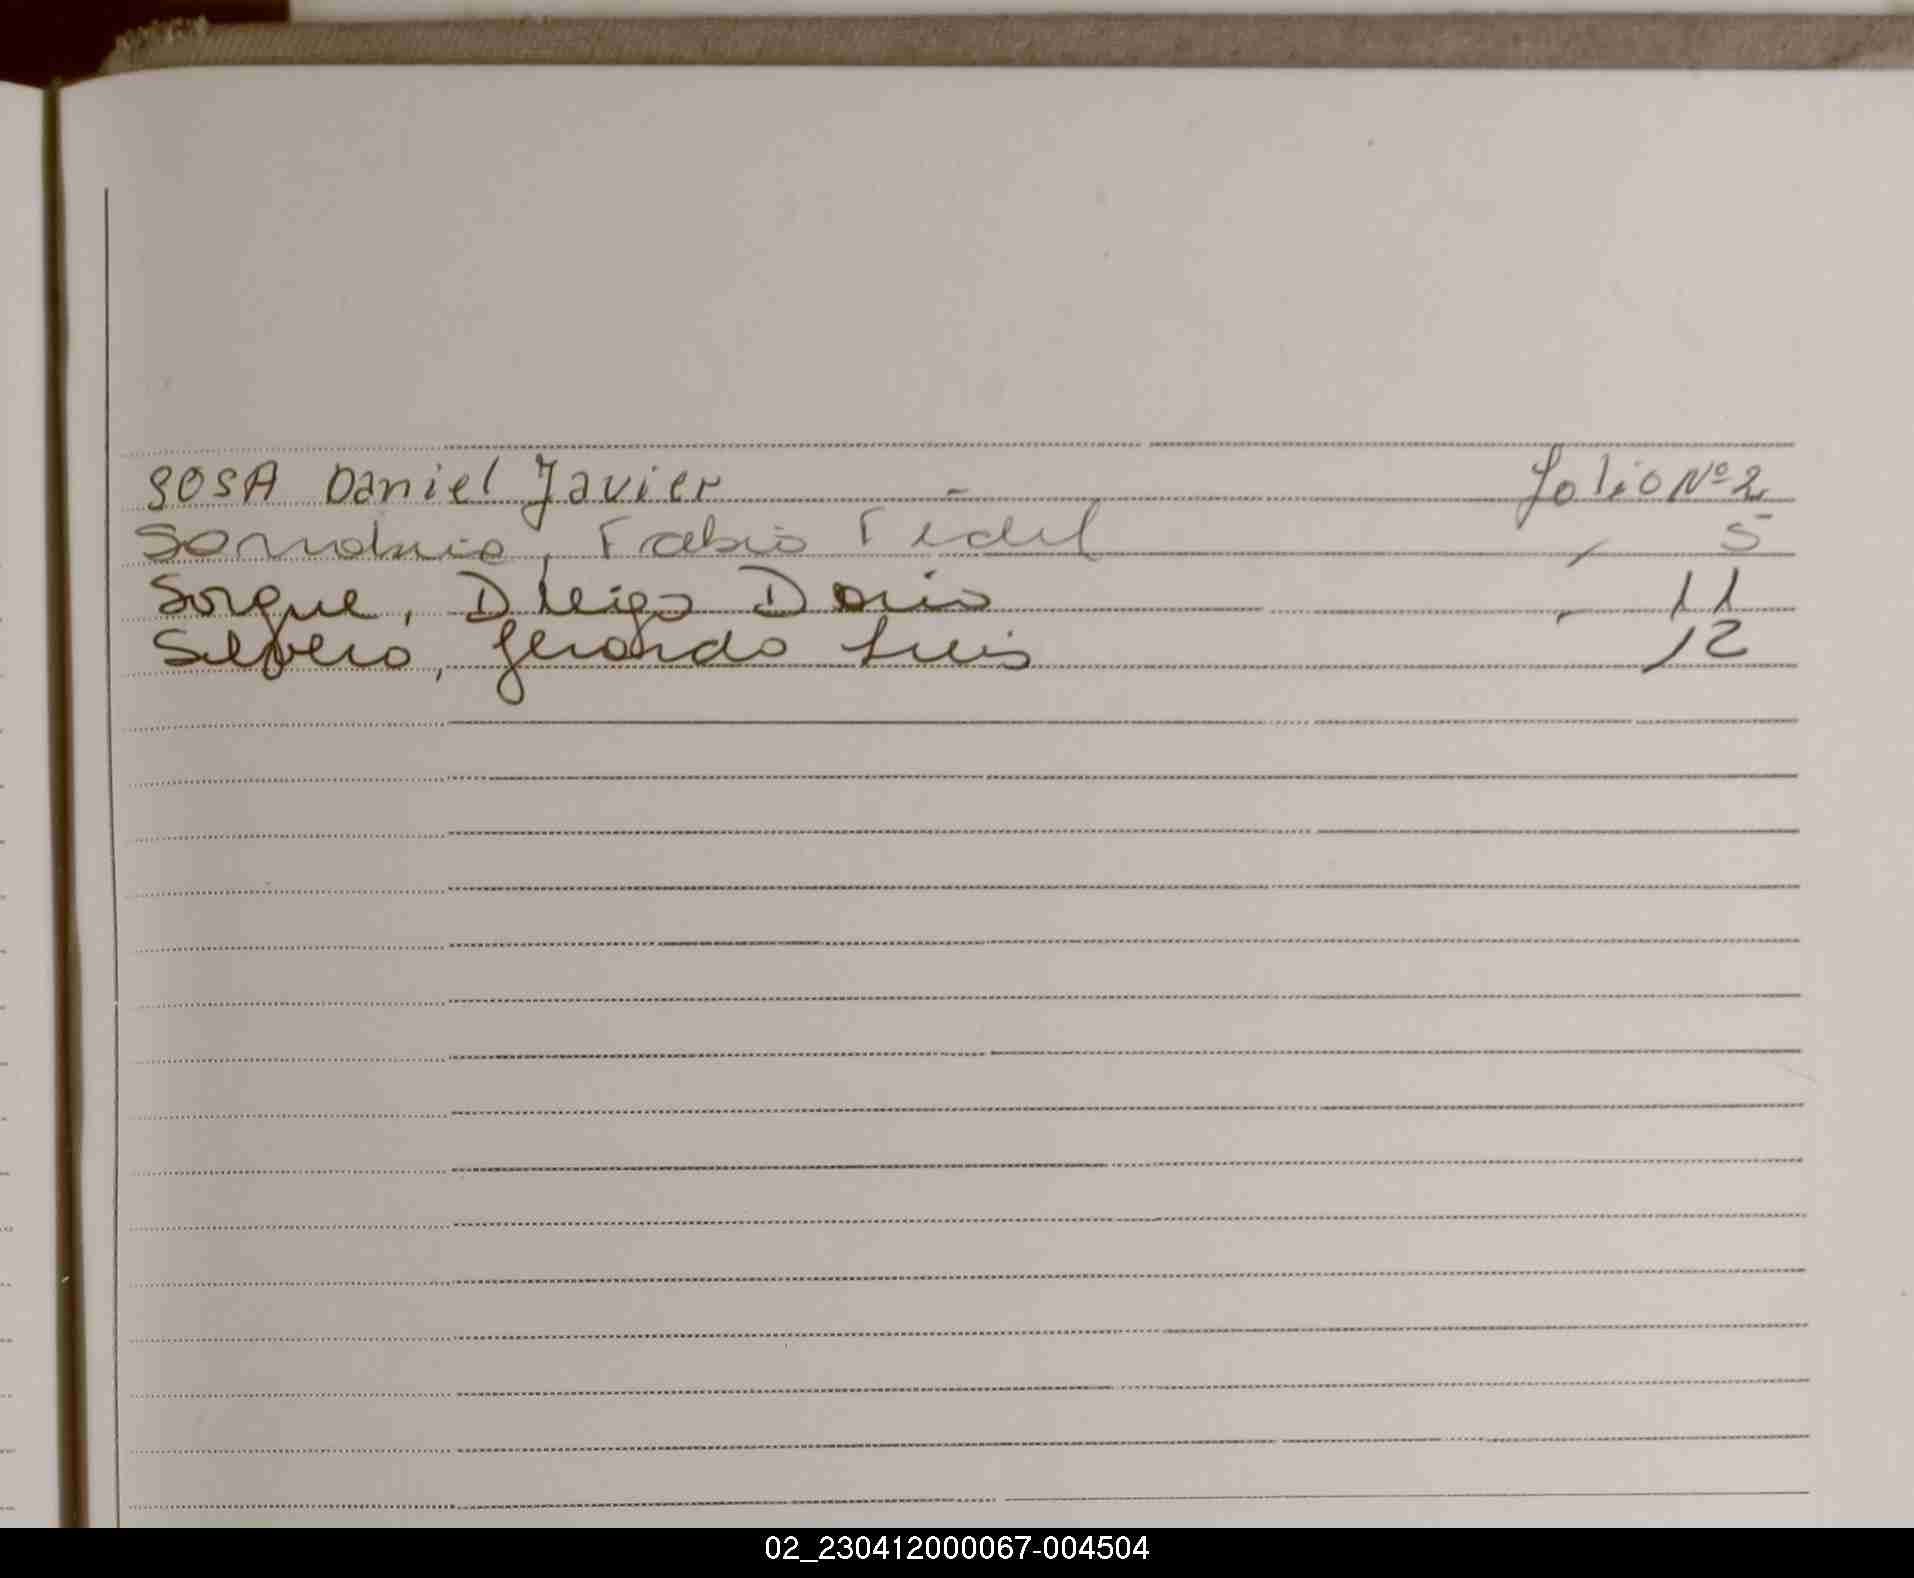 SOSA Daniel Javier - Folio Nº 2
Fabio Fidel 5
Sorque, Diego Dario - 11
Silvero, Gerardo Luis 12
02_230412000067-004504